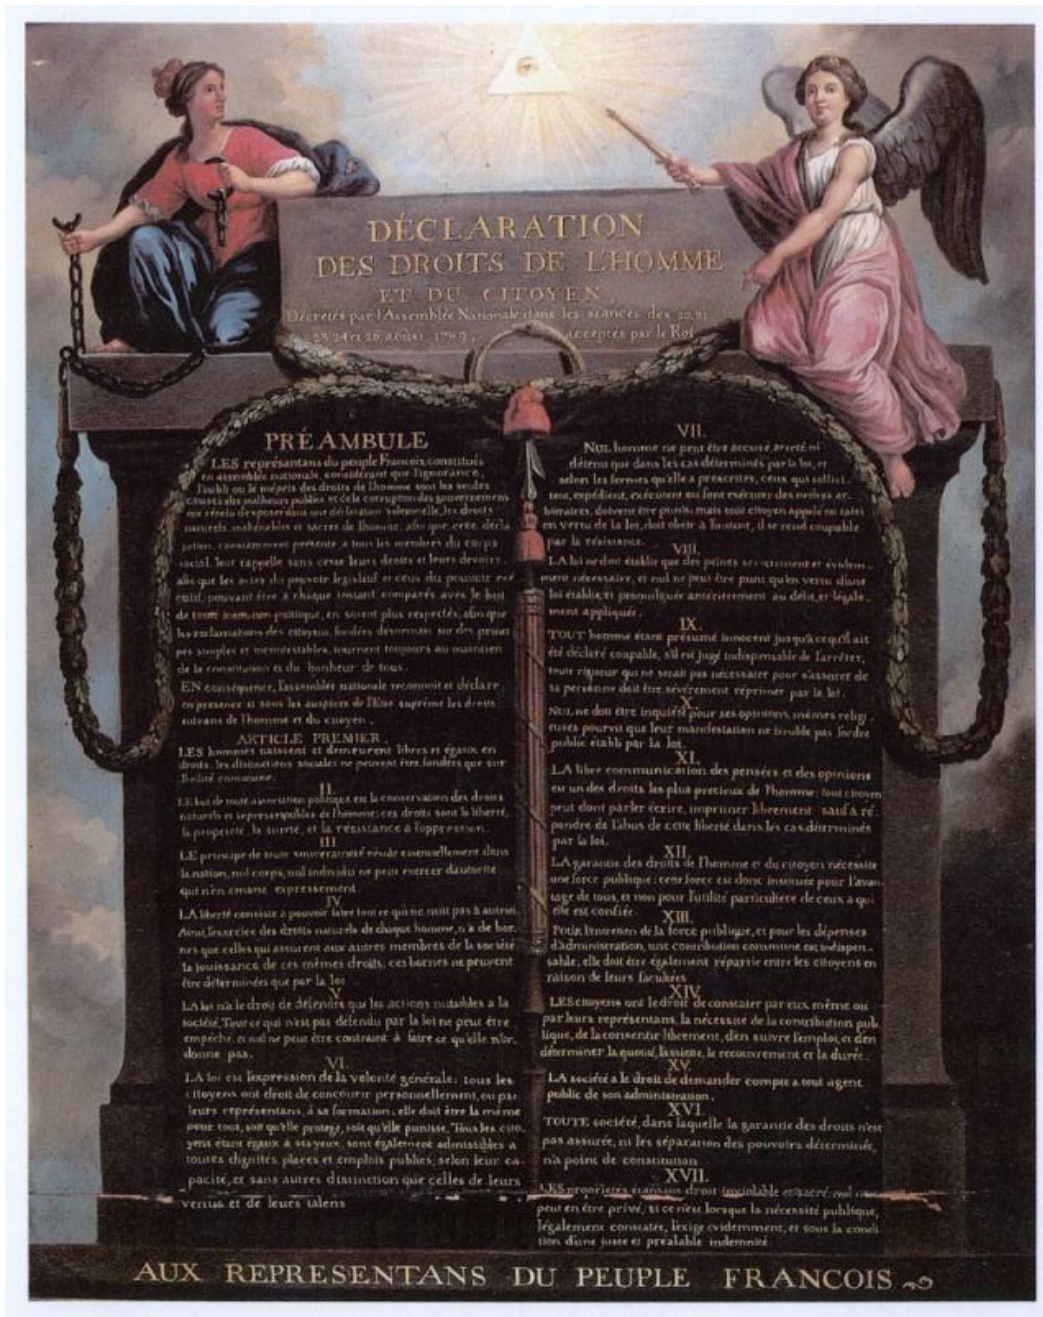 DÉCLARATION
DES DROITS DE L'HOMME
ET DU CITOYEN,
Décretés par l'Assemblée Nationale dans les séances des 20, 21
23 24 et 26 août 1789, acceptés par le Roi
PRÉAMBULE
LES représantans du peuple François, constitués
en assemblée nationale, considérant que l'ignorance,
l'oubli ou le mépris des droits de l'homme sont les seules
causes des malheurs publics et de la corruption des gouvernemens
ont résolu d'exposer dans une déclaration solemnelle, les droits
naturels, inaliénables et sacrés de l'homme, afin que cette décla
ration, constamment présente a tous les membres du corps
social, leur rappelle sans cesse leurs droits et leurs devoirs,
afin que les actes du pouvoir legislatif et ceux du pouvoir exé
cutif, pouvant être à chaque instant comparés avec le but
de toute institution politique, en soient plus respectés; afin que
les reclamations des citoyens, fondées désormais sur des princi
pes simples et incontestables, tournent toujours au maintien
de la constitution et du bonheur de tous.
EN conséquence, l'assemblée nationale reconnoit et déclare,
en presence et sous les auspices de l'Etre suprême les droits
suivans de l'homme et du citoyen.
ARTICLE PREMIER.
LES hommes naissent et demeurent libres et égaux en
droits, les distinctions sociales ne peuvent être fondées que sur
l'utilité commune.
II.
LE but de toute association politique est la conservation des droits
naturels et imprescriptibles de l'homme; ces droits sont la liberté,
la propriété, la sureté, et la résistance à l'oppression.
III.
LE principe de toute souveraineté réside essentiellement dans
la nation, nul corps, nul individu ne peut exercer d'autorité
qui n'en emane expressément
IV
LA liberté consiste a pouvoir faire tout ce qui ne nuit pas à autrui
Ainsi, l'exercice des droits naturels de chaque homme, n'a de bor
nes que celles qui assurent aux autres membres de la société
la jouissance de ces mêmes droits; ces bornes ne peuvent
être déterminées que par la loi
V.
LA loi n'a le droit de défendre que les actions nuisibles a la
société, Tout ce qui n'est pas défendu par la loi ne peut être
empêché, et nul ne peut être contraint à faire ce qu'elle n'or
donne pas.
VI.
LA loi est l'expression de la volonté générale; tous les
citoyens ont droit de concourir personnellement, ou par
leurs représentans, à sa formation; elle doit être la même
pour tous, soit qu'elle protege, soit qu'elle punisse, Tous les cito
yens étant égaux à ses yeux, sont également admissibles a
toutes dignités, places et emplois publics, selon leur ca
pacité, et sans autres distinction que celles de leurs
vertus et de leurs talens
VII.
NUL homme ne peut être accusé, arreté ni
détenu que dans les cas déterminés par la loi, et
selon les formes qu'elle a prescrites, ceux qui sollici
tent, expédient, exécutent ou font exécuter des ordres ar
bitraires, doivent être punis; mais tout citoyen appelé ou saisi
en vertu de la loi, doit obéir a l'instant, il se rend coupable
par la résistance.
VIII.
LA loi ne doit établir que des peines strictement et évidem
ment nécessaire, et nul ne peut être puni qu'en vertu d'une
loi établie et promulguée antérieurement au délit, et légale
ment appliquée.
IX.
TOUT homme étant présumé innocent jusqu'a ce qu'il ait
été déclaré coupable, s'il est jugé indispensable de l'arrêter,
toute rigueur qui ne serait pas nécessaire pour s'assurer de
sa personne doit être sévèrement réprimée par la loi.
X.
NUL ne doit être inquiété pour ses opinions, mêmes religi
euses pourvu que leur manifestation ne trouble pas l'ordre
public établi par la loi.
XI.
LA libre communication des pensées et des opinions
est un des droits les plus precieux de l'homme; tout citoyen
peut dont parler écrire, imprimer librement sauf à ré
pondre de l'abus de cette liberté dans les cas déterminés
par la loi.
XII.
LA garantie des droits de l'homme et du citoyen nécessite
une force publique; cette force est donc instituée pour l'avan
tage de tous, et non pour l'utilité particuliere de ceux a qui
elle est confiée.
XIII.
POUR l'entretien de la force publique, et pour les dépenses
d'administration, une contribution commune est indispen-
sable, elle doit être également répartie entre les citoyens en
raison de leurs facultées
XIV.
LES citoyens ont le droit de constater par eux même ou
par leurs représentans, la nécessité de la contribution pub
lique, de la consentir librement, d'en suivre l'emploi, et d'en
déterminer la quotité, l'assiete, le recouvrement et la durée.
XV.
LA société a le droit de demander compte a tout agent
public de son administration.
XVI.
TOUTE société, dans laquelle la garantie des droits n'est
pas assurée, ni les séparation des pouvoirs déterminée,
n'a point de constitution
XVII.
LES proprietés étant un droit inviolable et sacré, nul ne
peut en être privé, si ce n'est lorsque la nécessité publique,
légalement constatée, l'exige evidemment, et sous la condi
tion d'une juste et préalable indemnité.
AUX REPRESENTANS DU PEUPLE FRANCOIS